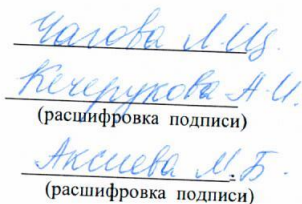 Чагова М.Щ.
Кечерукова А.И.
(расшифровка подписи)
Аксиева М.Б.
(расшифровка подписи)